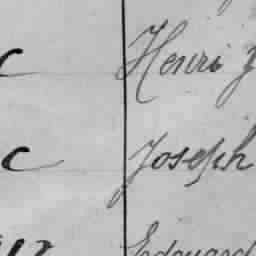 c Henri J
c Joseph
Edouard